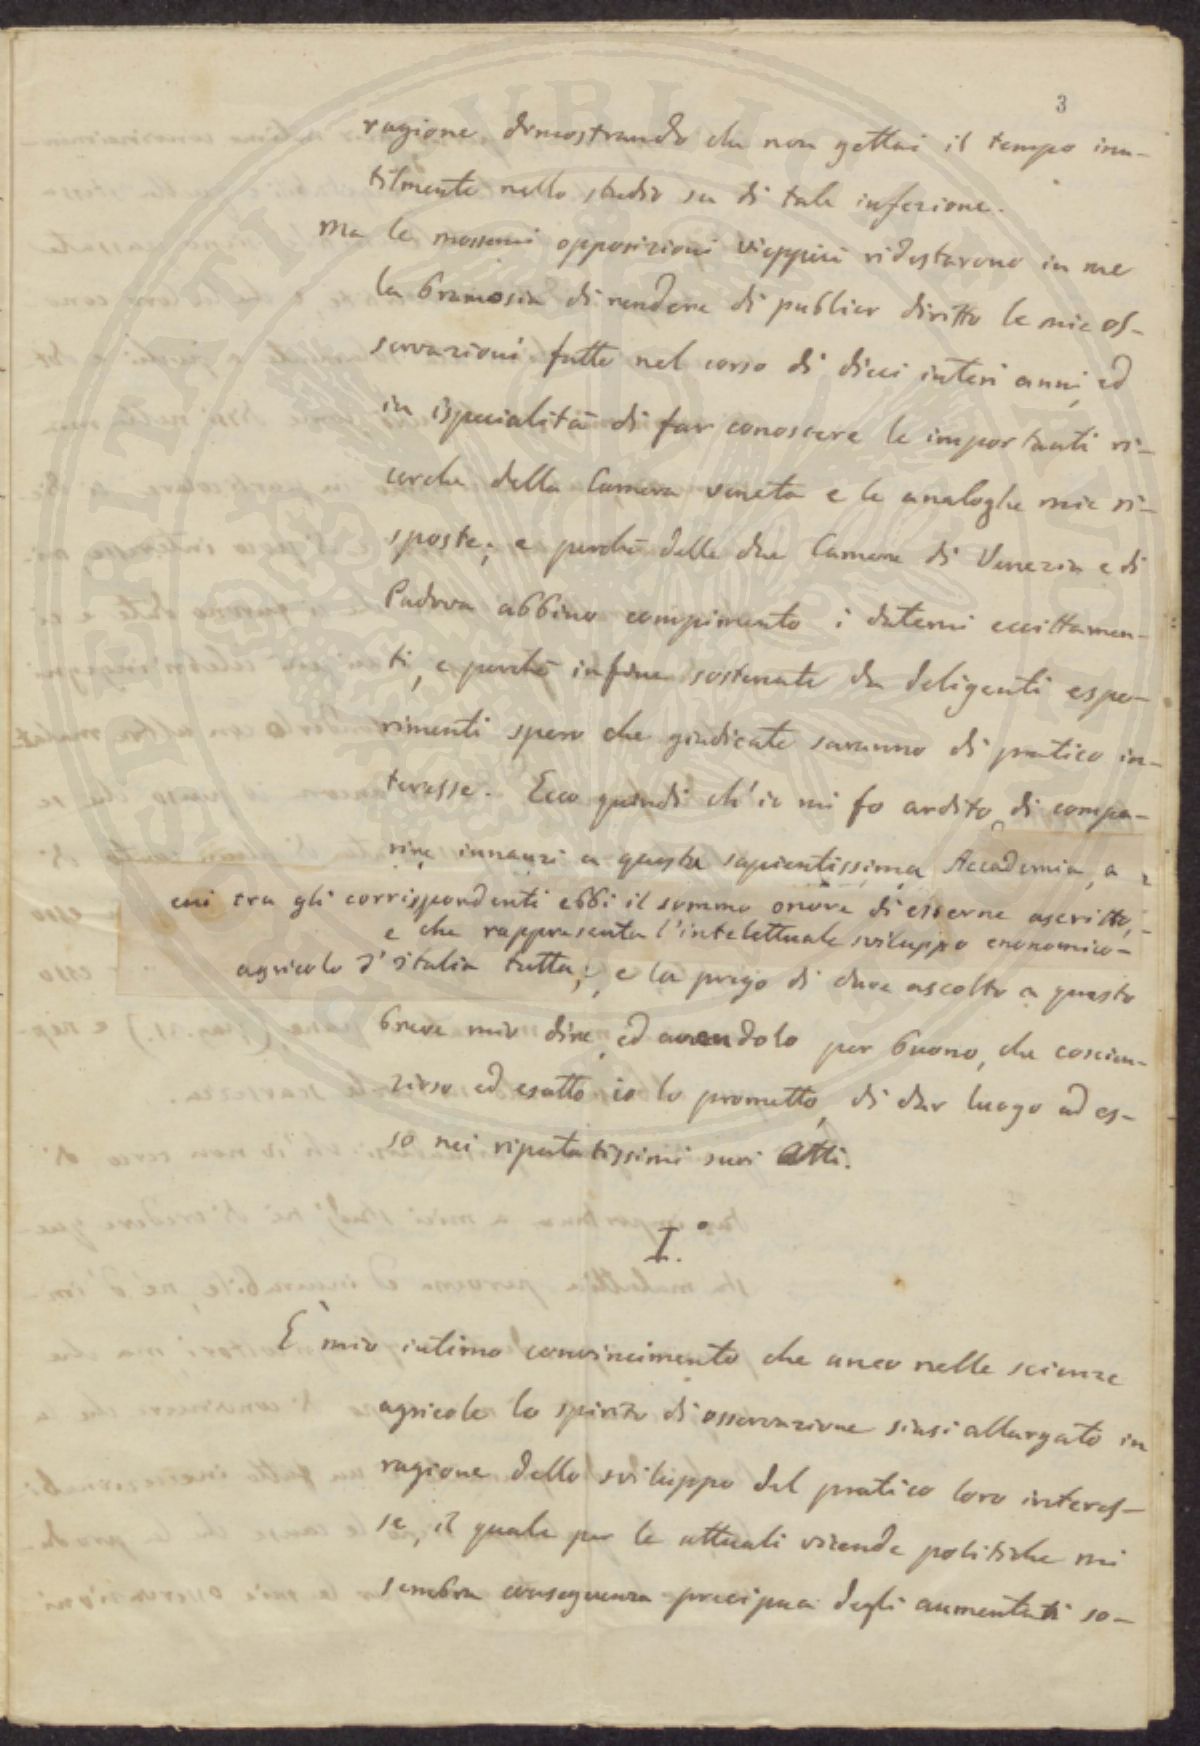 3
ragione, dimostrando che non gettai il tempo inu-
tilmente nello studio su di tale infezione.
Ma le mossemi opposizioni vieppiù ridestarono in me
la bramosia di rendere di publico diritto le mie os-
servazioni fatte nel corso di dieci interi anni, ed
in ispecialità di far conoscere le importanti ri-
cerche della Camera veneta e le analoghe mie ri-
sposte; e perchè delle due Camere di Venezia e di
Padova abbino compimento i datemi eccittamen-
ti, e perchè infine sostenute da deligenti espe-
rimenti spero che giudicate saranno di pratico in-
teresse. Ecco quindi ch'io mi fo ardito di compa-
rire innanzi a questa sapientissima Accademia, a
cui tra gli corrispondenti ebbi il sommo onore di esserne ascritto,
e che rappresenta l'intelettuale sviluppo enonomico-
agricolo d'Italia tutta; e la prego di dare ascolto a questo
breve mio dire, ed avendolo per buono, che coscien-
zioso ed esatto io lo prometto, di dar luogo ad es-
so nei riputatissimi suoi Atti.
I.°
È mio intimo convincimento che anco nelle scienze
agricole lo spirito di osservazione siasi allargato in
ragione dello sviluppo del pratico loro interes-
se, il quale per le attuali vicende politiche mi
sembra conseguenza precipua degli aumentati so-